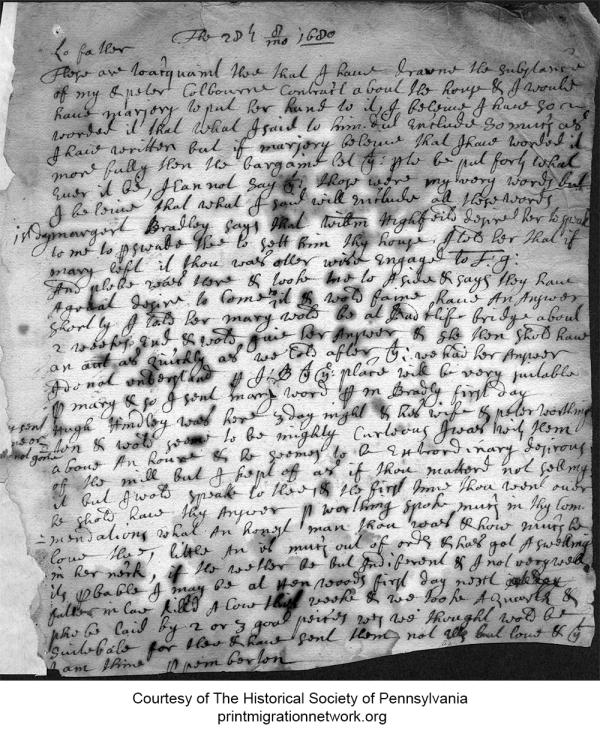 The 28th 8 mo 1680
Lo father
These are to acquaint thee that I have drawne the substance
of my & peter Colbourne Contract about the house & I would
have marjery to put her hand to it, I beleive I have so
worded it that what I said to him Include so much as
I have written but if marjery beleive that I have worded it
more fully then the bargaine let it be put forth what
ever it be, I Can not say those were my very words but
I beleive that what I said will include all these words
margert Bradley says that desired her to speak
to me to pswade thee to sett him thy house, I told her that if
mary left it thou was other wise Engaged to J:g:
And was there & tooke me to A side & says they have
A great desire to Come to it & wold faine have An Answer
shortly I told her mary wold be at Radclife bridge about
2 weeks End & wold give her Answer & she then shold have
an as quickly as we Cold after we had her Answer
I do not understand place will be very suitable
p mary & so I sent mary word p m Bradly first day
Hugh Hindley was here 3 day night & his wife & peter worthing
ton & wold seeme to be mighty Curteous I was with them
above An houre & he seemes to be Extrordinary desirous
of the mill but I kept of as if thou matterd not sell
it but I wold speak to thee, & the first time thou went over
he shold have thy Answer p worthing spoke much in thy Com
mendations what An honest man thou was & how much he
love thee, little An is much out of order & has got A swelling
in her neck, if the wether be but Indiferent & I not very well
its pbable I may be at first day next
father in law kild A Cow this weeke & we tooke A quarter &
laid by 2 or 3 good peices we thought wold be
suitebale for thee & have sent them, not but love &
I am thine p pemberton
Courtesy of The Historical Society of Pennsylvania
printmigrationnetwork.org